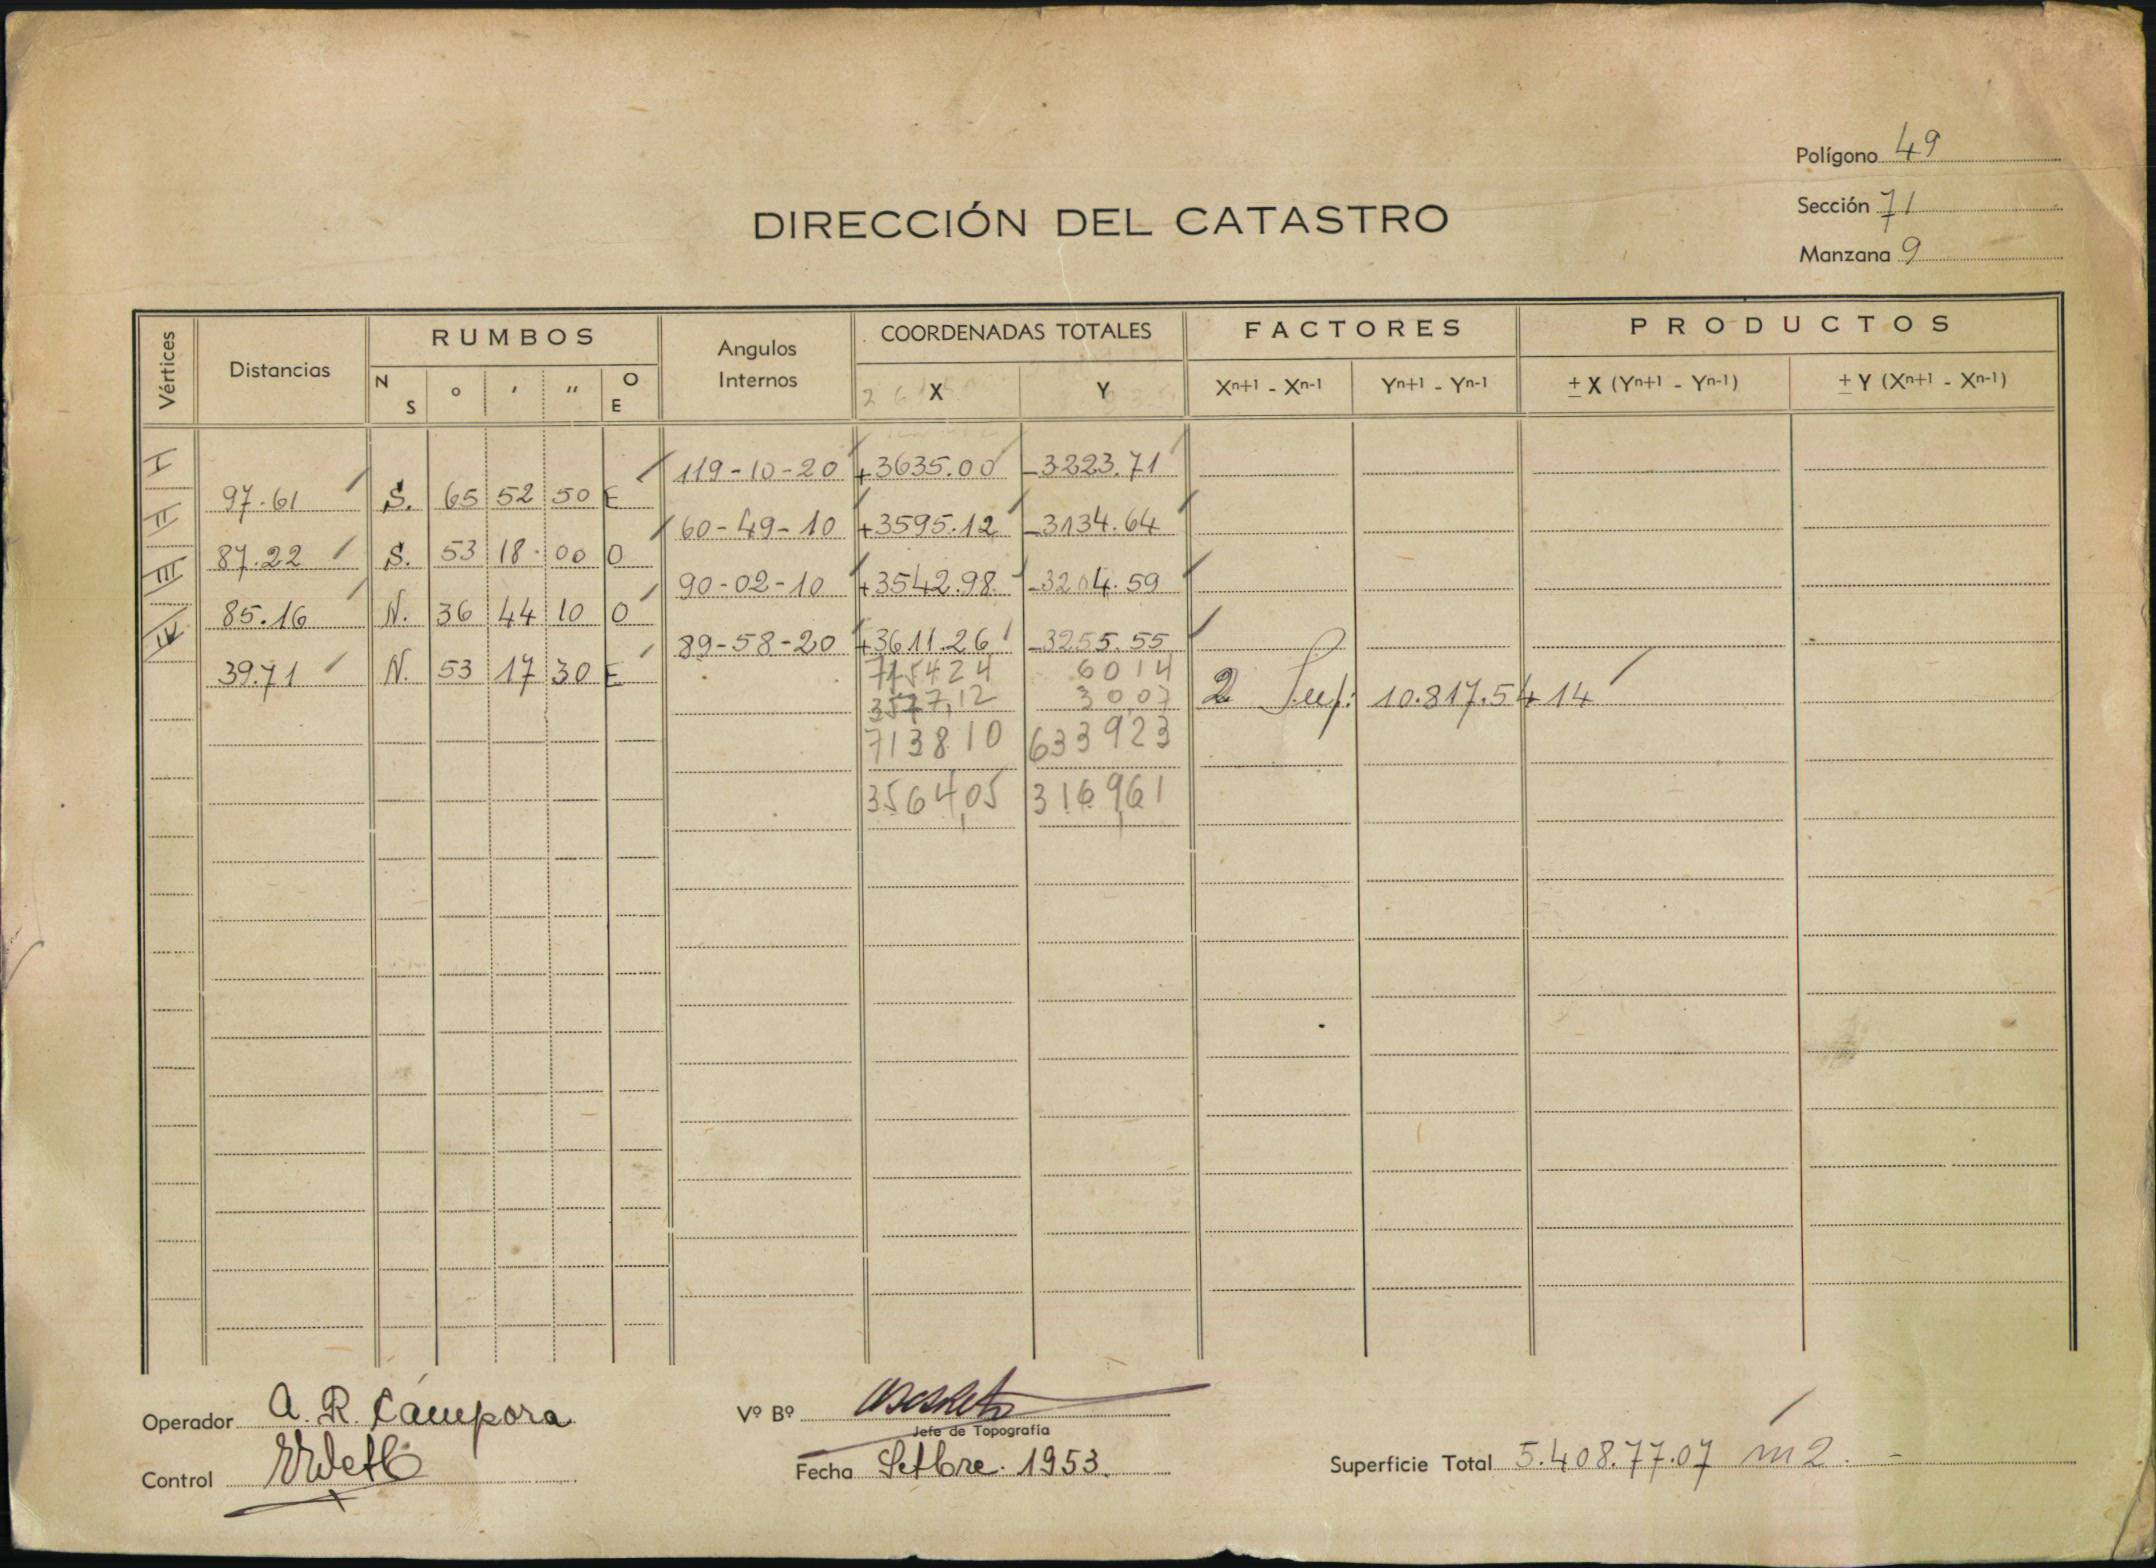 Polígono 49
Sección 71
Manzana 9
DIRECCIÓN DEL CATASTRO
Vértices Distancias RUMBOS Angulos Internos COORDENADAS TOTALES FACTORES PRODUCTOS
N S ° ' " O E X Y Xn+1 - Xn-1 Yn+1 - Yn-1 ± X (Yn+1 - Yn-1) ± Y (Xn+1 - Xn-1)
I 119-10-20 +3635.00 -3223.71
97.61 S. 65 52 50 E
II 60-49-10 +3595.12 -3134.64
87.22 S. 53 18 00 O
III 90-02-10 +3542.98 -3204.59
85.16 N. 36 44 10 O
IV 89-58-20 +3611.26 -3255.55
39.71 N. 53 17 30 E
715424 6014
3577,12 30,07
2 Sup: 10.817.54 14
713810 633923
356405 316961
Operador A. R. Cámpora
Vº Bº
Jefe de Topografía
Control
Fecha Setbre. 1953.
Superficie Total 5.408.77.07 m2. -